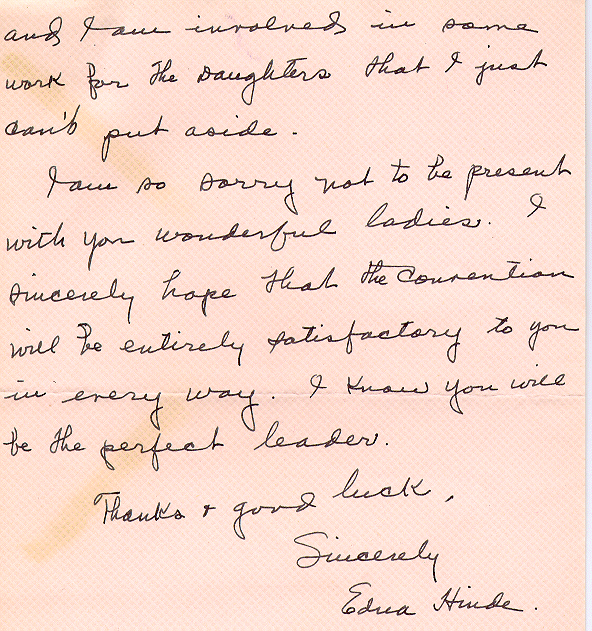 and I am involved in some
work for the Daughters that I just
can't put aside.
I am so sorry not to be present
with you wonderful ladies. I
sincerely hope that the Convention
will be entirely satisfactory to you
in every way. I know you will
be the perfect leader.
Thanks & good luck,
Sincerely
Edna Hinde.